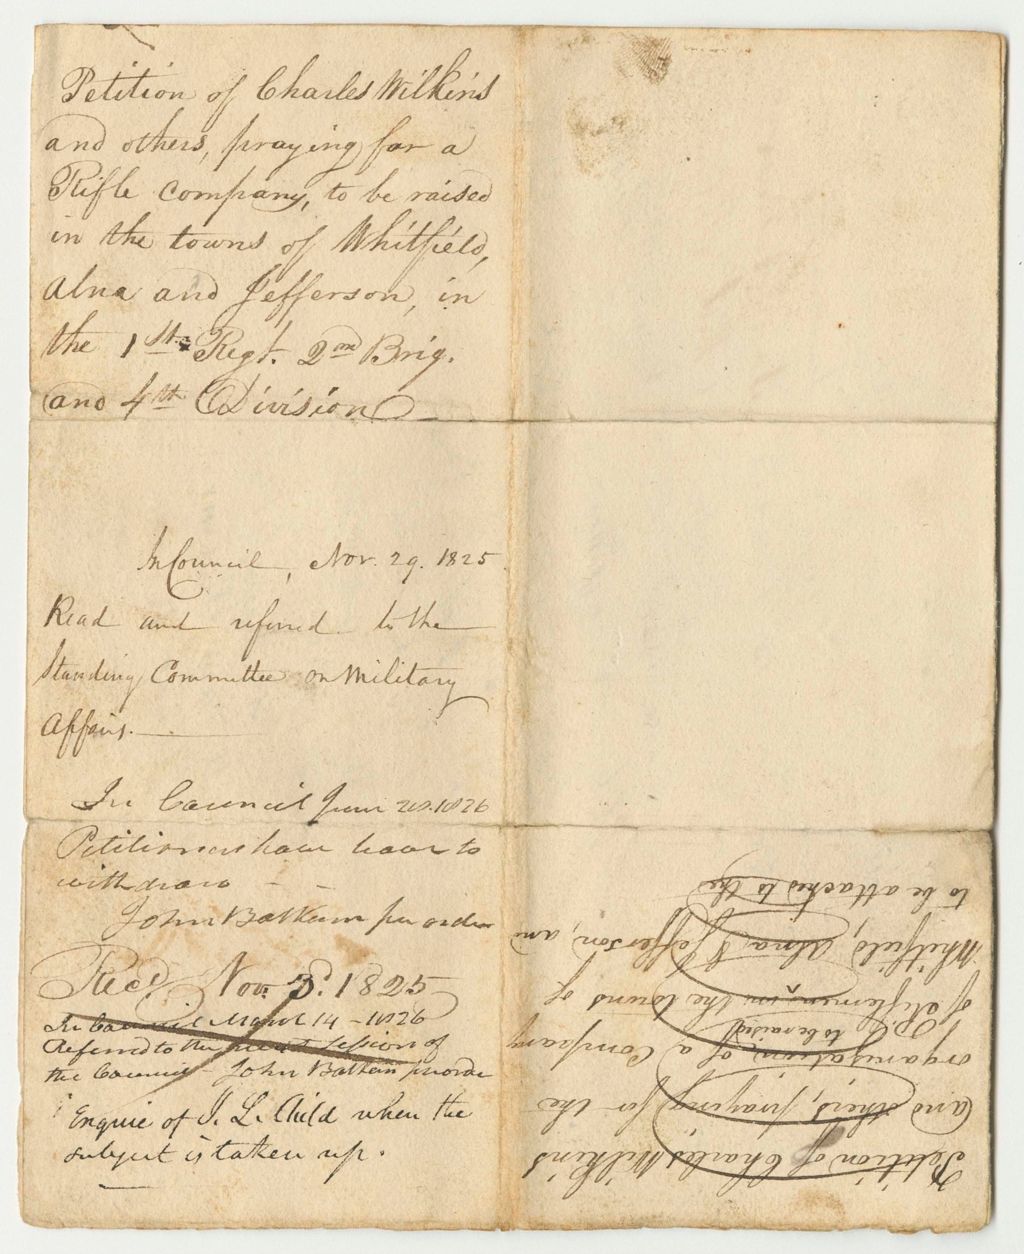 Petition of Charles Wilkins
and others, praying for a
Rifle company, to be raised
in the towns of Whitfield,
Alna and Jefferson, in
the 1st Regt. 2nd Brig.
and 4th Division
In Council, Nov. 29. 1825
Read and referred to the
Standing Committee on Military
Affairs.
In Council June 28. 1826
Petitioners have leave to
withdraw
John Balkam per order
Recd Nov. 3d. 1825
In Council March 14 - 1826
Referred to the next session of
the Council - John Balkam per order
Enquire of J. L. Child when the
subject is taken up.
Petition of Charles Wilkins
and others, praying for the
organization of a Company
to be raised
of Riflemen, in the towns of
Whitfield, Alna & Jefferson, and
to be attached to the